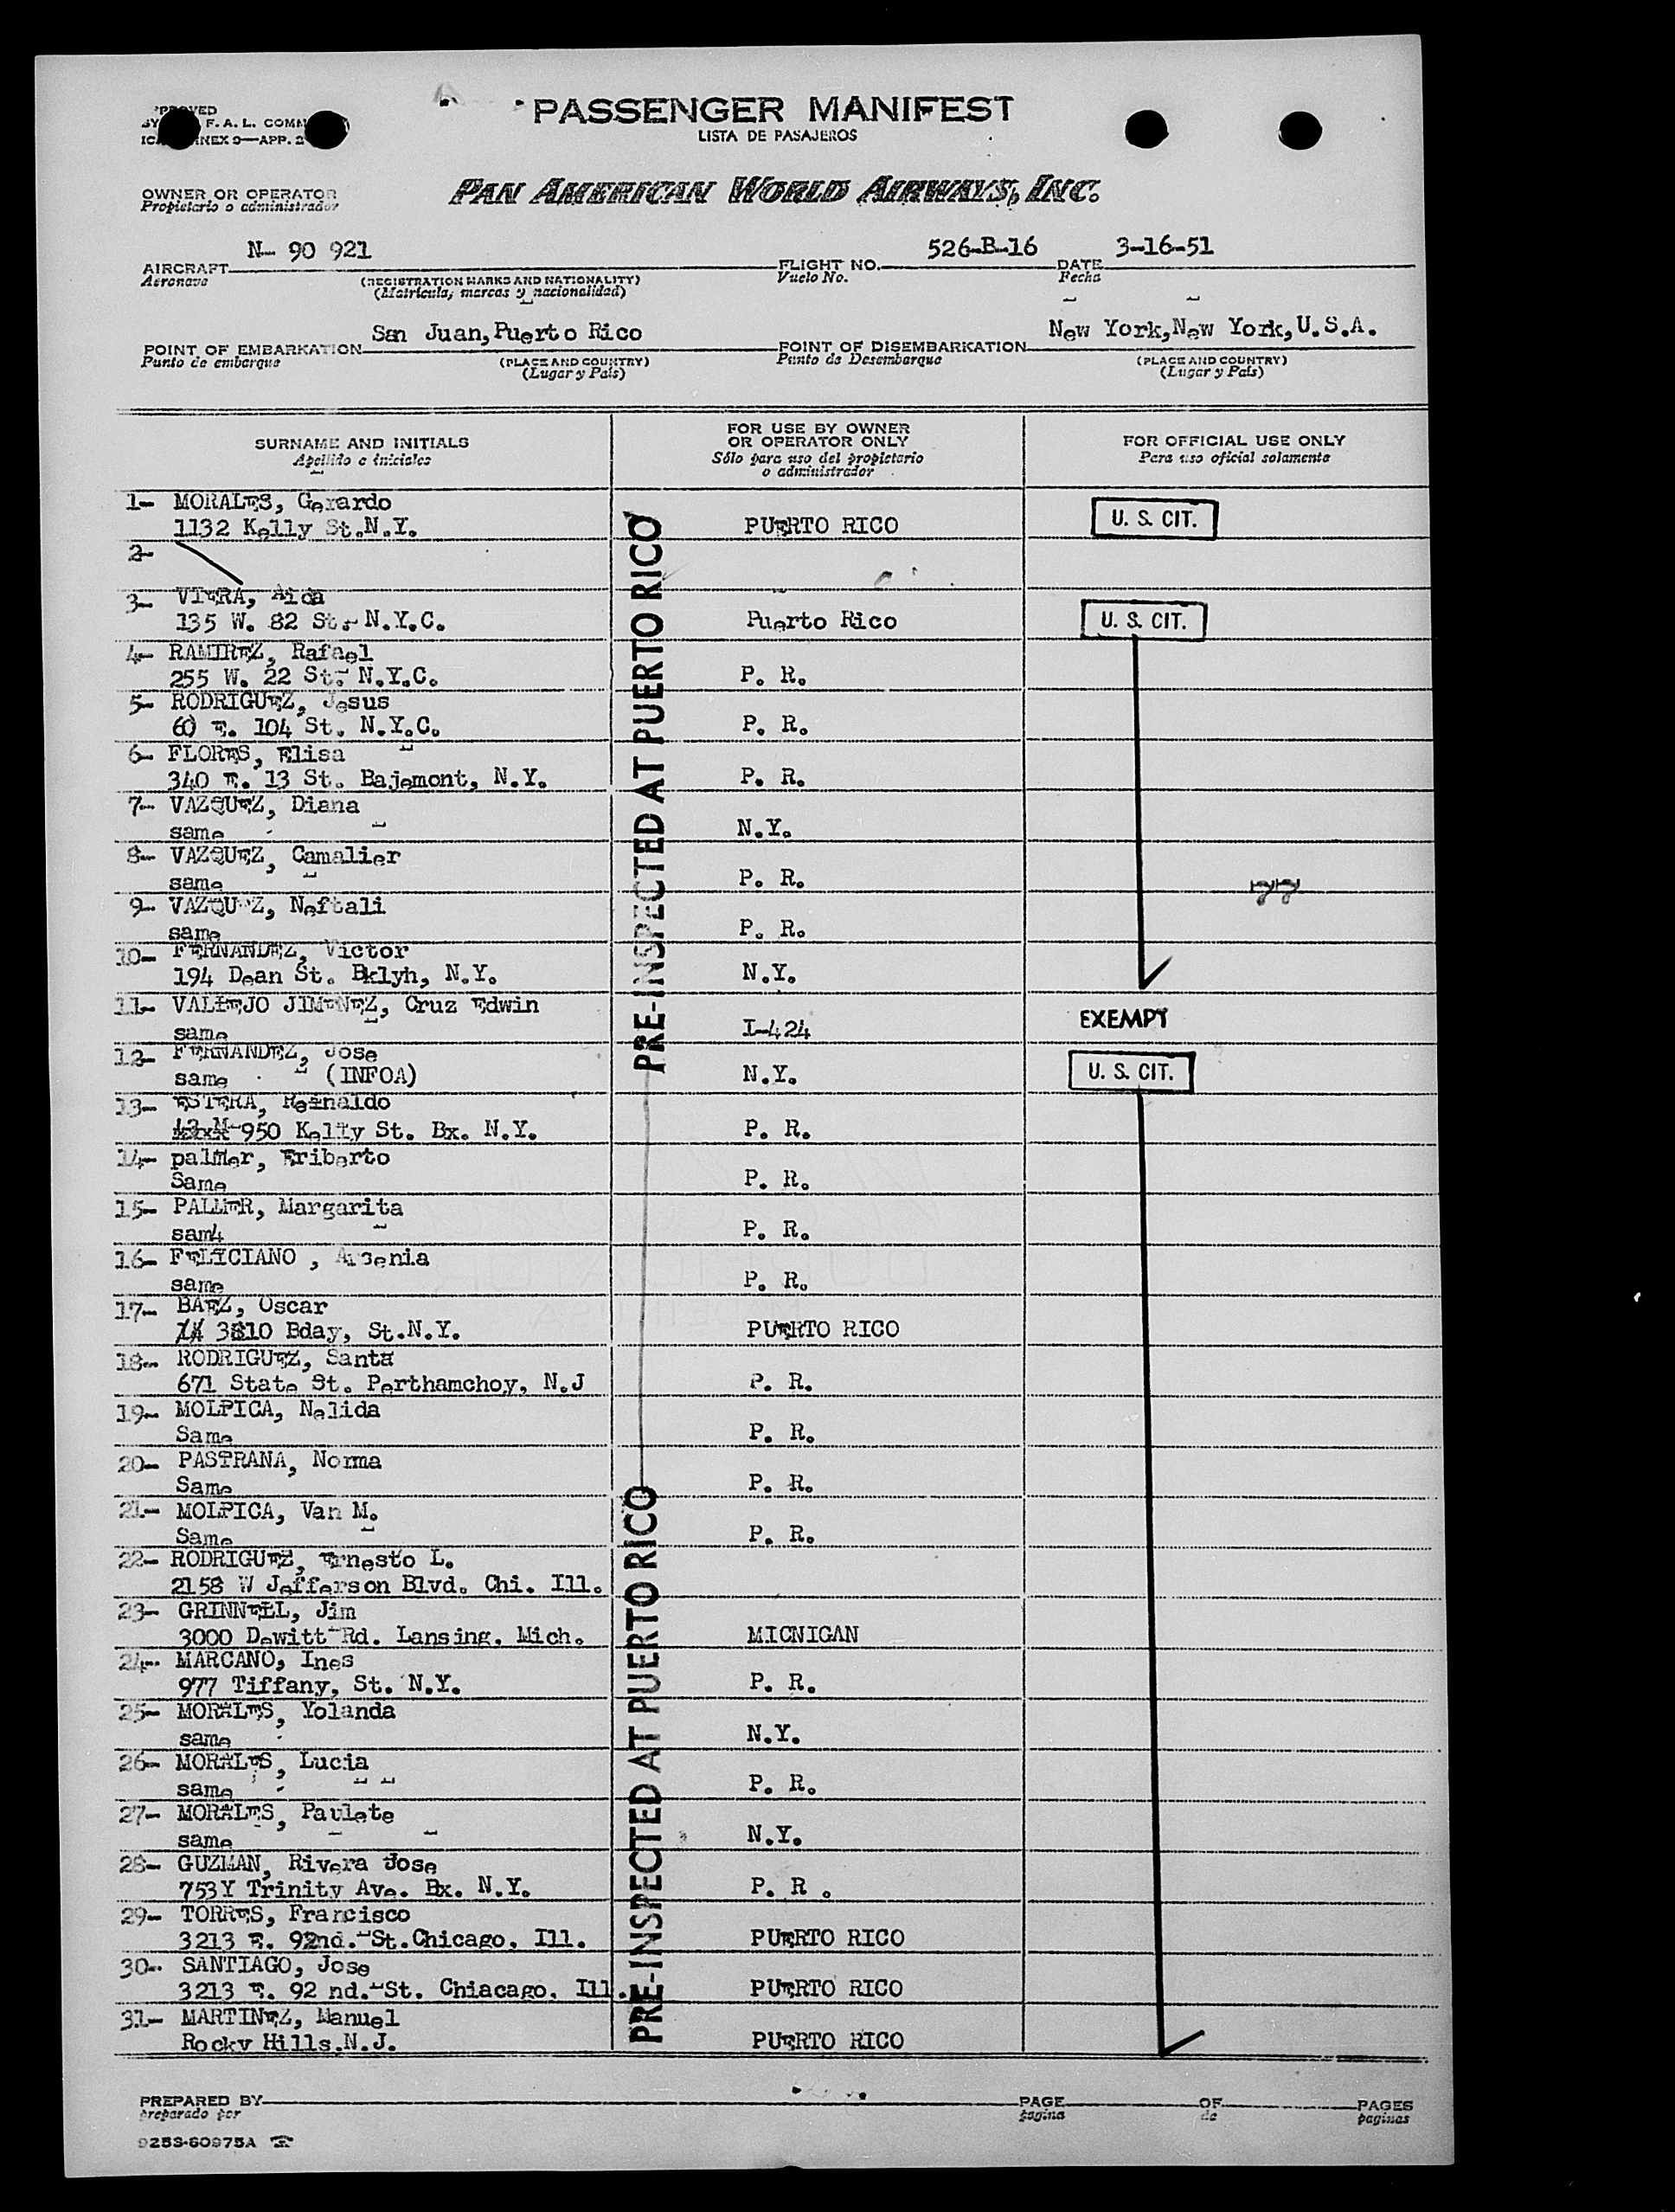 PASSENGER MANIFEST
LISTA DE PASAJEROS
F. A. L.
APP. 2
OWNER OR OPERATOR
Propietario o administrador
PAN AMERICAN WORLD AIRWAYS, INC.
N- 90 921
526-B-16
3-16-51
AIRCRAFT
FLIGHT NO.
DATE
Aeronave
(REGISTRATION MARKS AND NATIONALITY)
Vuelo No.
Fecha
(Matrícula, marcas y nacionalidad)
San Juan,Puerto Rico
New York,New York,U.S.A.
POINT OF EMBARKATION
POINT OF DISEMBARKATION
Punto de embarque
(PLACE AND COUNTRY)
Punto de Desembarque
(PLACE AND COUNTRY)
(Lugar y País)
(Lugar y País)
SURNAME AND INITIALS
Apellido e iniciales
FOR USE BY OWNER
OR OPERATOR ONLY
Sólo para uso del propietario
o administrador
FOR OFFICIAL USE ONLY
Para uso oficial solamente
PRE-INSPECTED AT PUERTO RICO
1- MORALES, Gerardo
1132 Kelly St.N.Y. PUERTO RICO U. S. CIT.
2-
3- VIERA, Aida
135 W. 82 St.- N.Y.C. Puerto Rico U. S. CIT.
4- RAMIREZ, Rafael
255 W. 22 St. N.Y.C. P. R.
5- RODRIGUEZ, Jesus
60 E. 104 St. N.Y.C. P. R.
6- FLORES, Elisa
340 E. 13 St. Bajemont, N.Y. P. R.
7- VAZQUEZ, Diana
same N.Y.
8- VAZQUEZ, Camalier
same P. R.
9- VAZQUEZ, Neftali
same P. R.
10- FERNANDEZ, Victor
194 Dean St. Bklyh, N.Y. N.Y.
11- VALLEJO JIMENEZ, Cruz Edwin
same I-424 EXEMPT
12- FERNANDEZ, Jose
same (INFOA) N.Y. U. S. CIT.
13- ESTERA, Reinaldo
950 Kelly St. Bx. N.Y. P. R.
14- palmer, Eriberto
Same P. R.
15- PALMER, Margarita
sam4 P. R.
16- FELICIANO , Arsenia
same P. R.
17- BAEZ, Oscar
3810 Bday, St.N.Y. PUERTO RICO
18- RODRIGUEZ, Santa
671 State St. Perthamchoy, N.J P. R.
19- MOLPICA, Nelida
Same P. R.
20- PASTRANA, Norma
Same P. R.
21- MOLPICA, Van M.
Same P. R.
22- RODRIGUEZ, Ernesto L.
2158 W Jefferson Blvd. Chi. Ill.
23- GRINNELL, Jim
3000 Dewitt Rd. Lansing. Mich. MICNIGAN
24- MARCANO, Ines
977 Tiffany, St. N.Y. P. R.
25- MORALES, Yolanda
same N.Y.
26- MORALES, Lucia
same P. R.
27- MORALES, Paulete
same N.Y.
28- GUZMAN, Rivera Jose
753Y Trinity Ave. Bx. N.Y. P. R .
29- TORRES, Francisco
3213 E. 92nd. St.Chicago. Ill. PUERTO RICO
30- SANTIAGO, Jose
3213 E. 92 nd. St. Chiacago. Ill. PUERTO RICO
31- MARTINEZ, Manuel
Rocky Hills.N.J. PUERTO RICO
PRE-INSPECTED AT PUERTO RICO
PREPARED BY
PAGE
OF
PAGES
preparado por
pagina
de
paginas